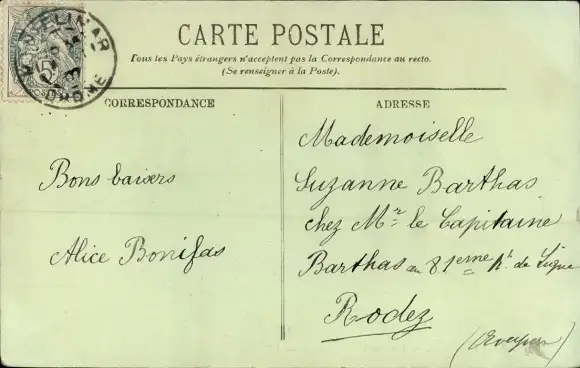 MONTELIMAR
DROME
CARTE POSTALE
Tous les Pays étrangers n'acceptent pas la Correspondance au recto.
(Se renseigner à la Poste).
CORRESPONDANCE
Bons baisers
Alice Bonifas
ADRESSE
Mademoiselle
Suzanne Barthas
chez Mr. le Capitaine
Barthas au 81eme Rt. de Ligne
Rodez
(Aveyron)